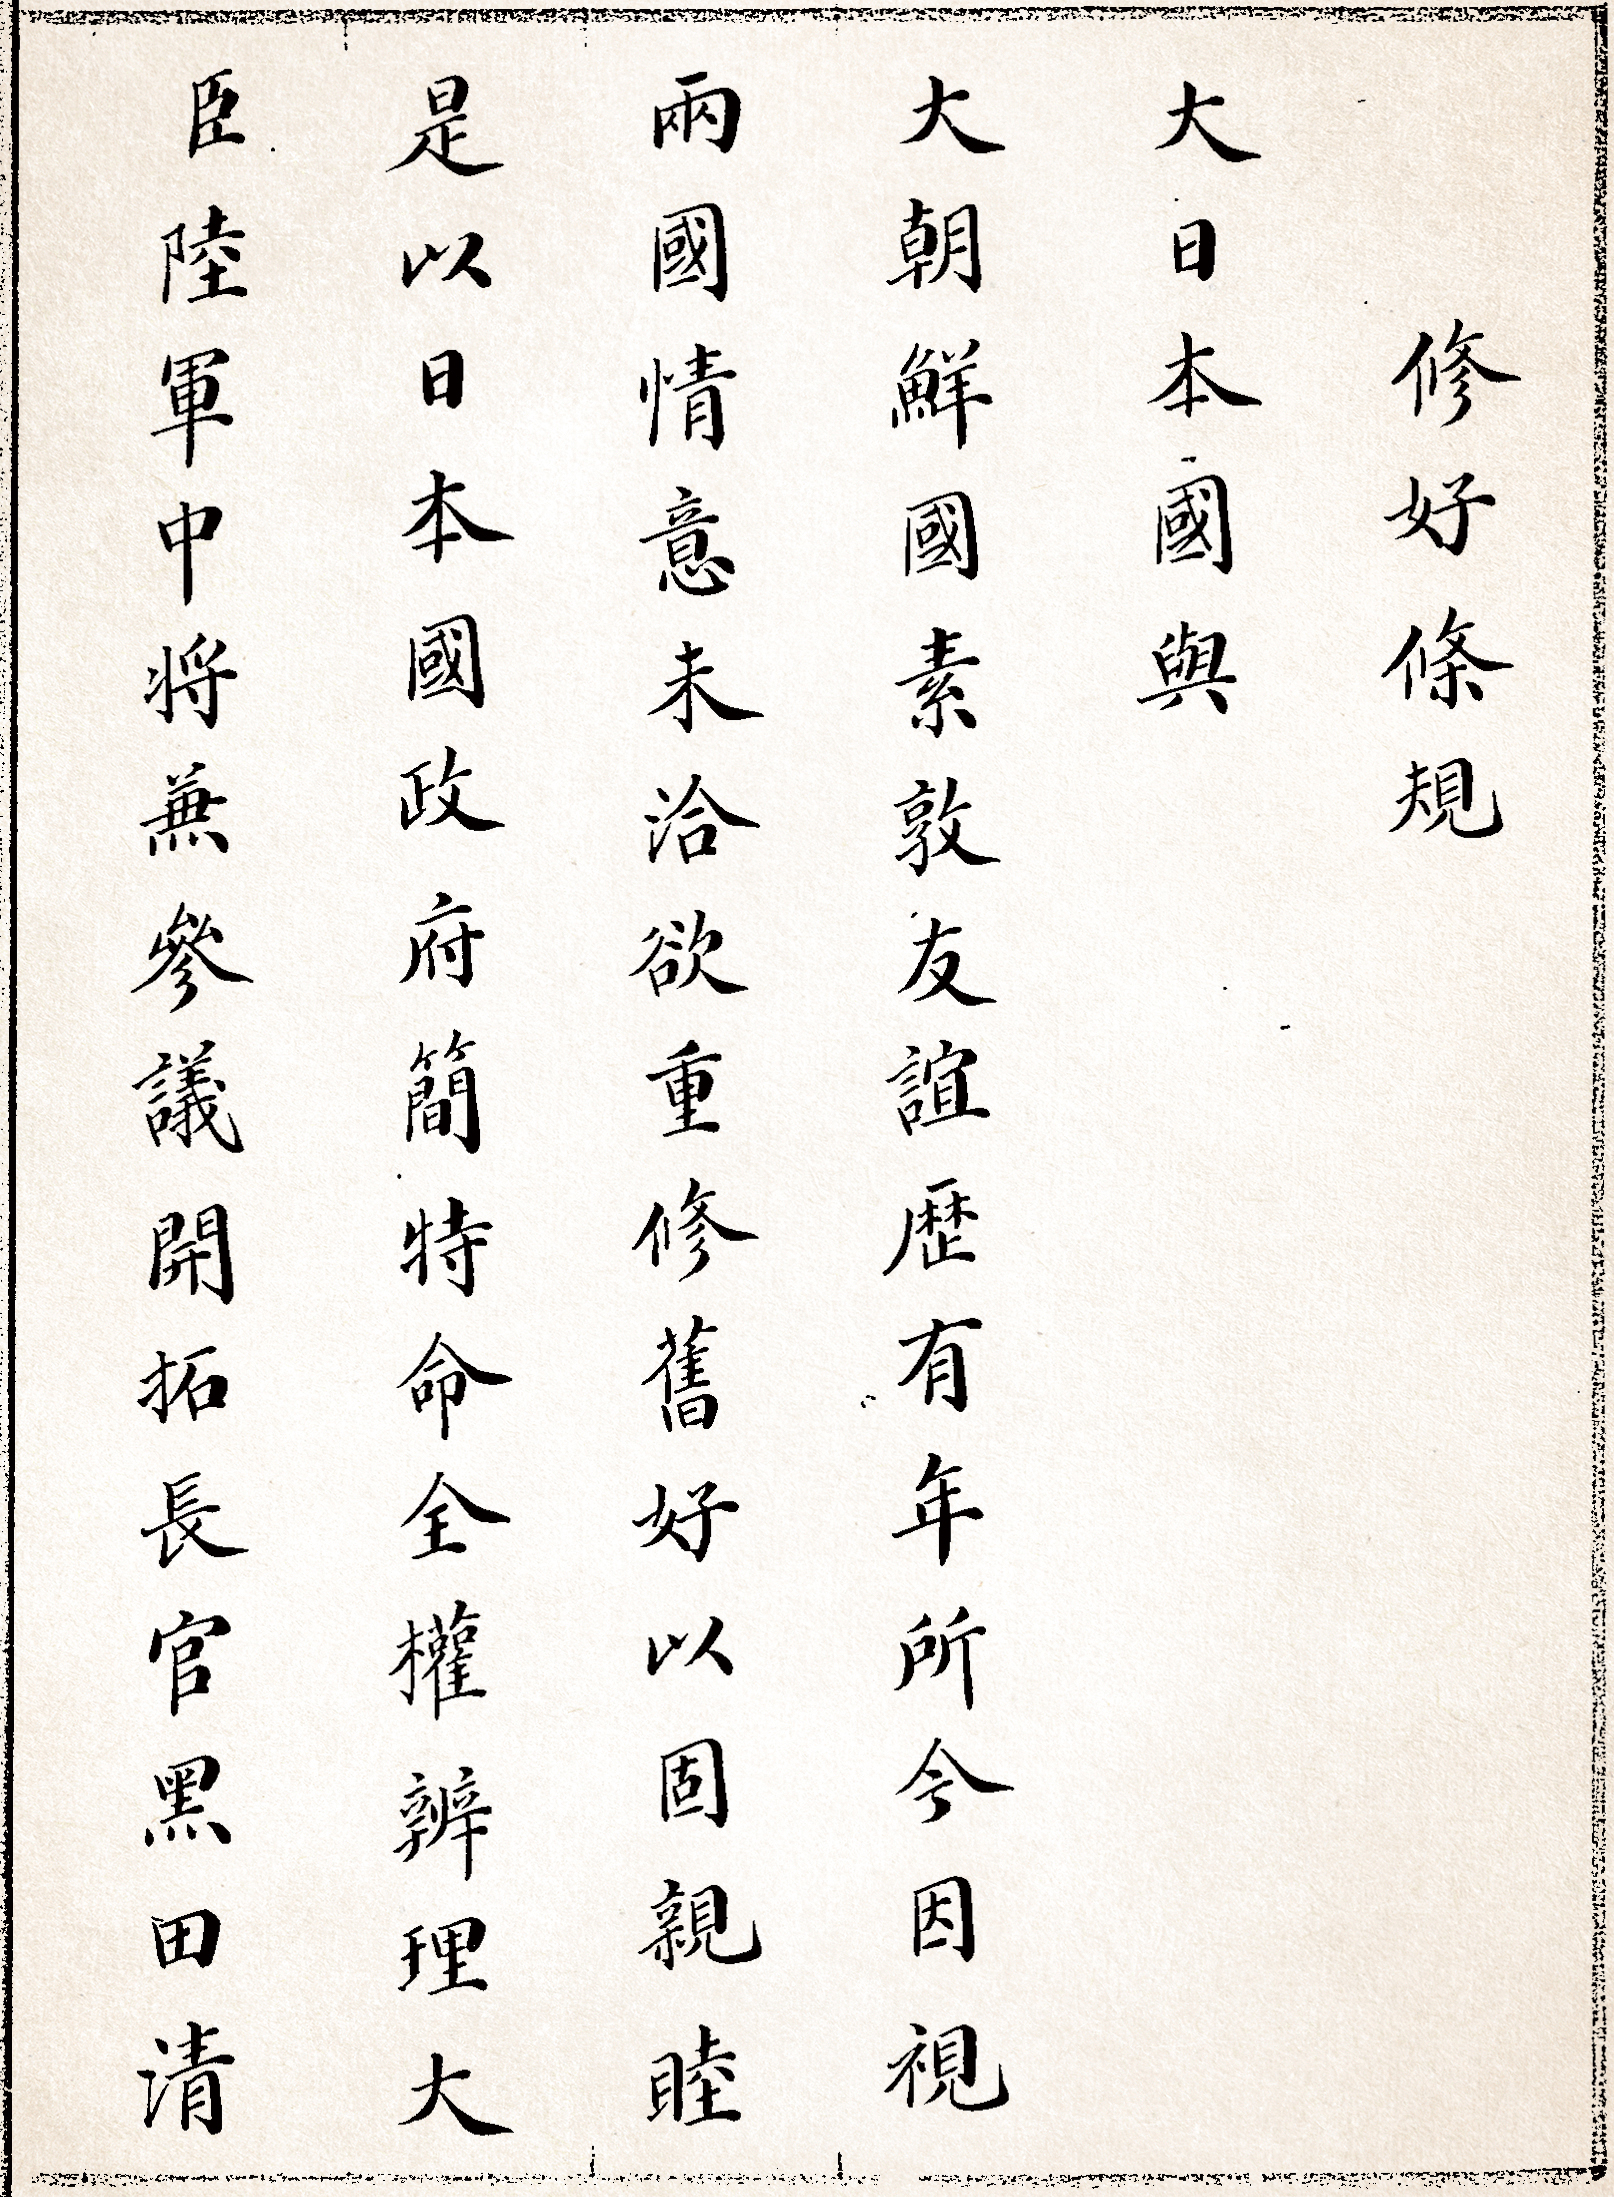 修好條規
大日本國與
大朝鮮國素敦友誼歷有年所今因視
兩國情意未洽欲重修舊好以固親睦
是以日本國政府簡特命全權辨理大
臣陸軍中将兼參議開拓長官黑田清